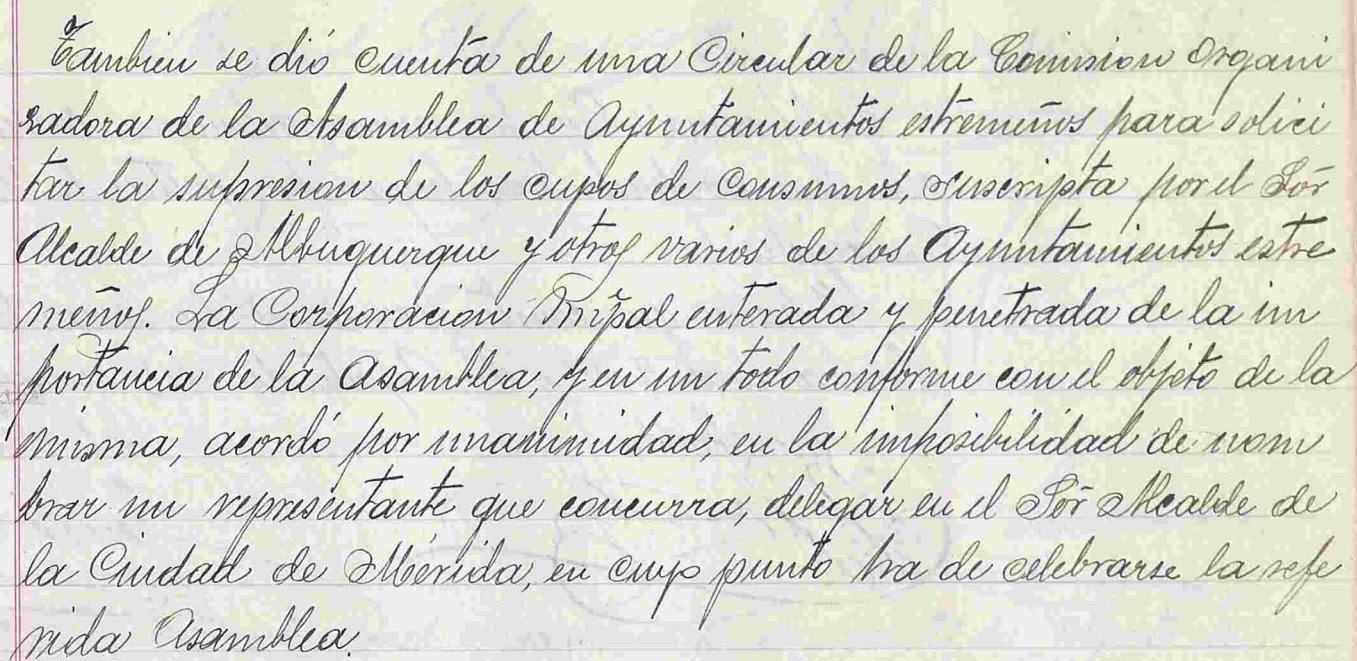 Tambien se dió cuenta de una Circular de la Comision Organi
zadora de la Asamblea de Ayuntamientos estremeños para solici
tar la supresion de los cupos de Consumos, suscripta por el Sór
Alcalde de Alburquerque y otros varios de los Ayuntamientos estre
meños. La Corporacion Mñpal enterada y penetrada de la im
portancia de la Asamblea, y en un todo conforme con el objeto de la
misma, acordó por unanimidad, en la imposibilidad de nom
brar un representante que concurra, delegar en el Sór Alcalde de
la Ciudad de Mérida, en cuyo punto ha de celebrarse la refe
rida Asamblea.